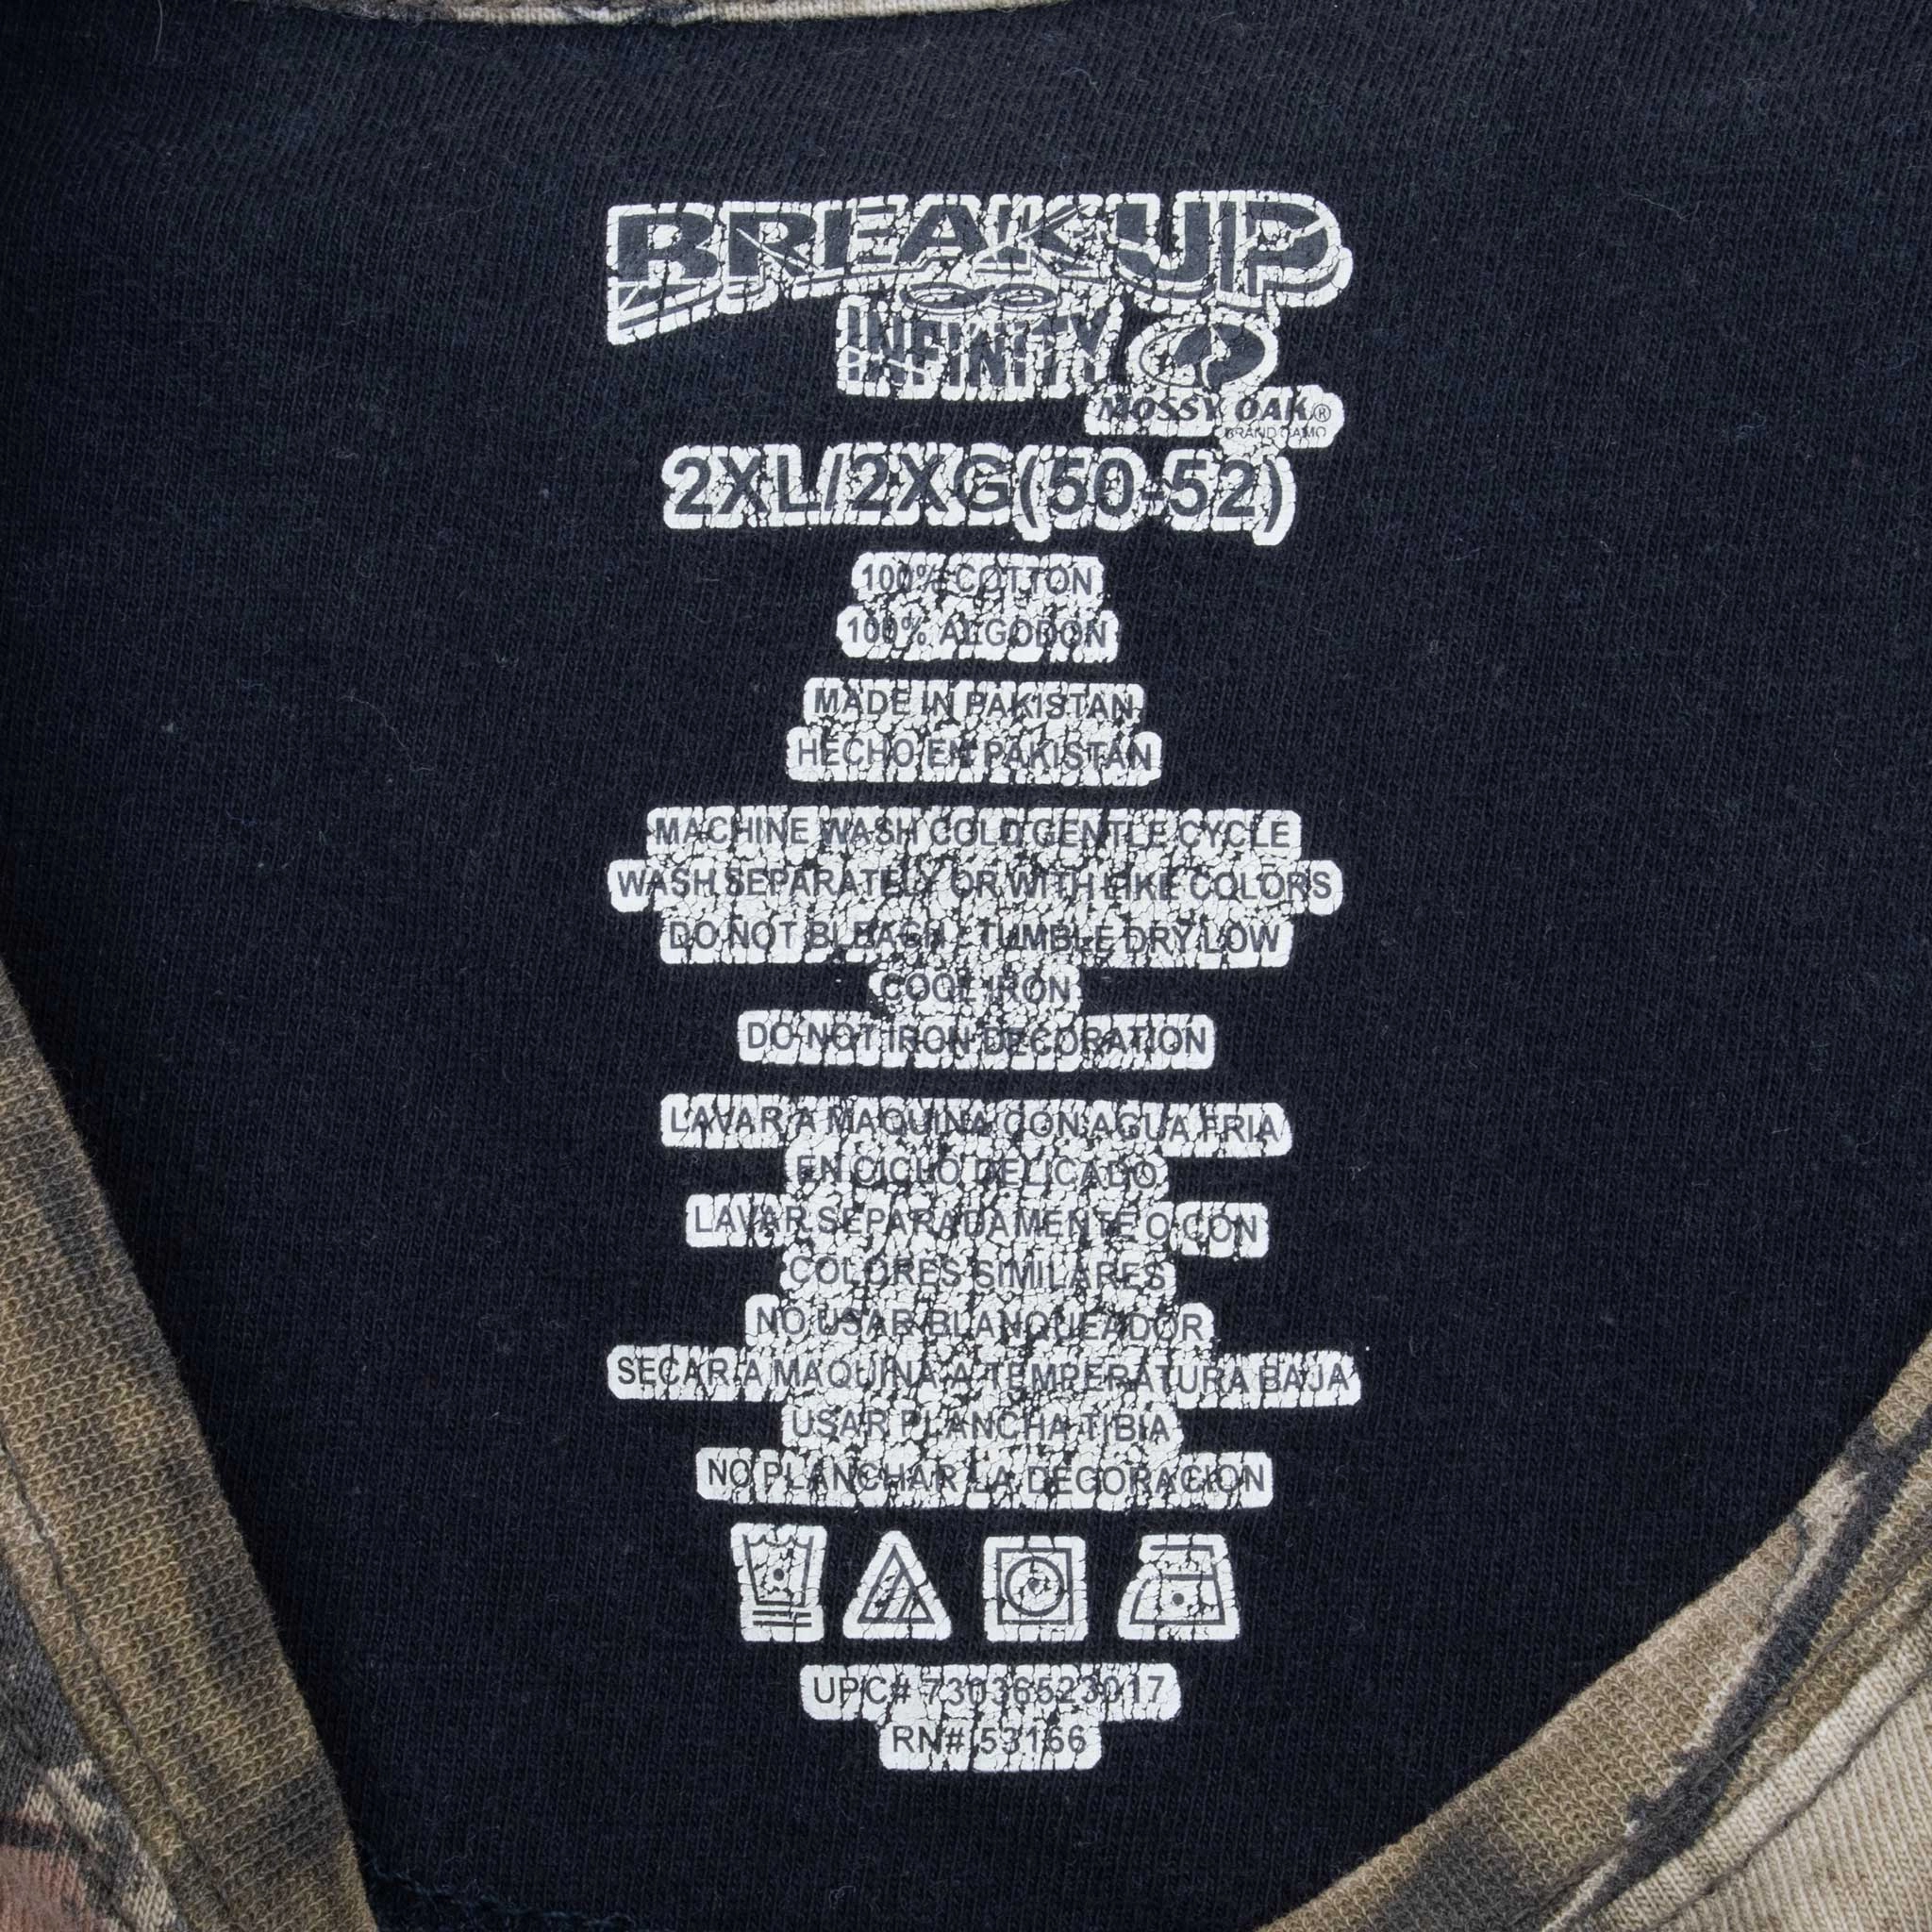 BREAKUP
INFINITY
MOSSY OAK®
BRAND CAMO
2XL/2XG(50-52)
100% COTTON
100% ALGODON
MADE IN PAKISTAN
HECHO EN PAKISTAN
MACHINE WASH COLD GENTLE CYCLE
WASH SEPARATELY OR WITH LIKE COLORS
DO NOT BLEACH / TUMBLE DRY LOW
COOL IRON
DO NOT IRON DECORATION
LAVAR A MAQUINA CON AGUA FRIA
EN CICLO DELICADO
LAVAR SEPARADAMENTE O CON
COLORES SIMILARES
NO USAR BLANQUEADOR
SECAR A MAQUINA A TEMPERATURA BAJA
USAR PLANCHA TIBIA
NO PLANCHAR LA DECORACION
UPC# 73036523017
RN# 53166